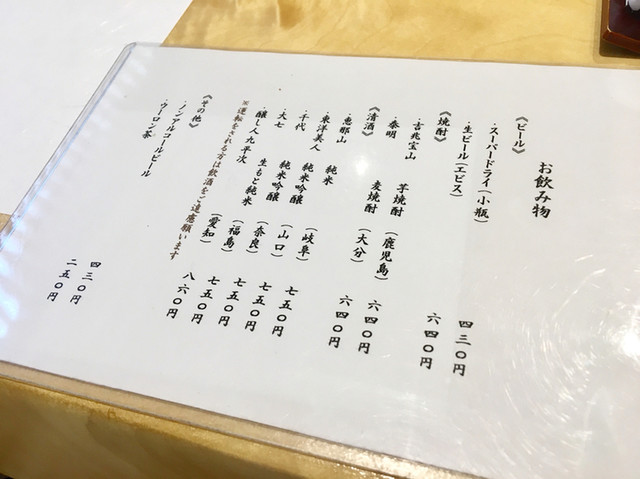 お飲み物
《ビール》
・スーパードライ(小瓶) 四三〇円
・生ビール(エビス) 六四〇円
《焼酎》
・吉兆宝山 芋焼酎 (鹿児島) 六四〇円
・泰明 麦焼酎 (大分) 六四〇円
《清酒》
・恵那山 純米 (岐阜) 七五〇円
・東洋美人 純米吟醸 (山口) 七五〇円
・千代 純米吟醸 (奈良) 七五〇円
・大七 生もと純米 (福島) 七五〇円
・醸し人九平次 (愛知) 八六〇円
※運転をされる方は飲酒をご遠慮願います
《その他》
・ノンアルコールビール 四三〇円
・ウーロン茶 二五〇円